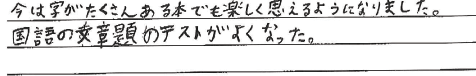 今は字がたくさんある本でも楽しく思えるようになりました。
国語の文章題のテストがよくなった。